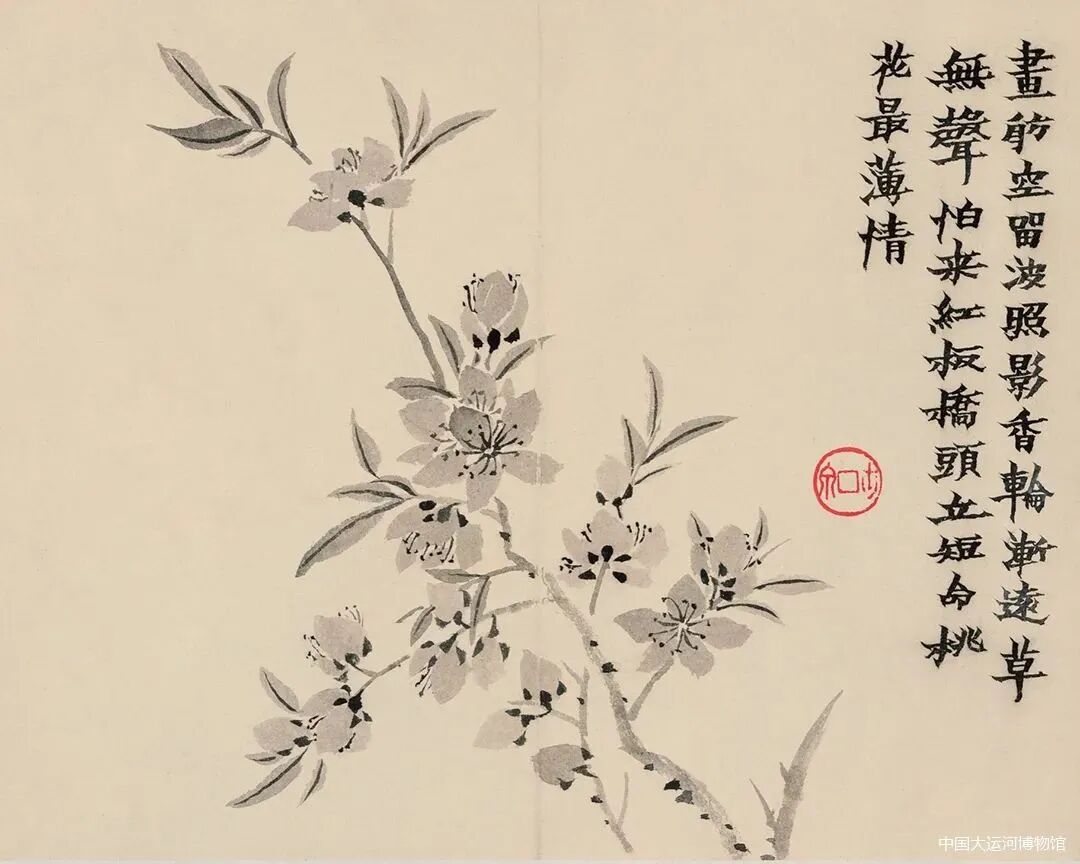 畫舫空留波照影香輪漸遠草
無聲怕来紅板橋頭立短命桃
花最薄情
中国大运河博物馆